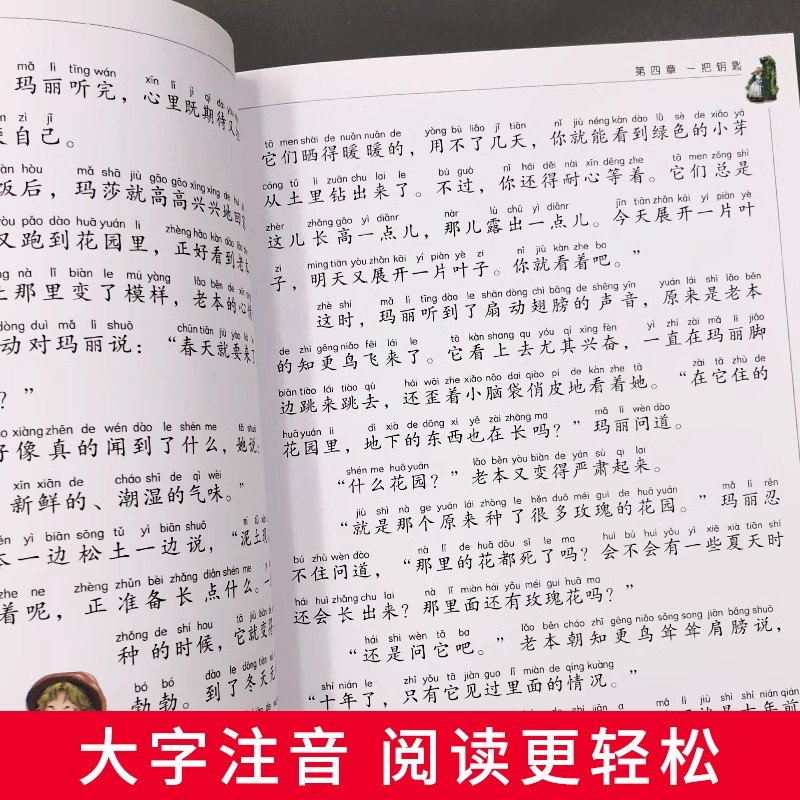 mǎ lì tīng wán
玛丽听完，心里既期待又
zì jǐ
自己。
饭后，玛莎就高高兴兴地回
yòu pǎo dào huā yuán lǐ
又跑到花园里，正好看到老
nà lǐ biàn le mú yàng
那里变了模样，老本的心
dòng duì mǎ lì shuō
动对玛丽说：“春天就要来了
？”
xiàng zhēn de wén dào le shén me
好像真的闻到了什么，她说：
xīn xiān de cháo shī de qì wèi
新鲜的、潮湿的气味。”
yì biān sōng tǔ yì biān shuō
本一边松土一边说，“泥土
zhe ne zhèng zhǔn bèi zhǎng diǎn shén me
着呢，正准备长点什么。
zhòng de shí hou
种的时候，它就变得
bó bó dào le dōng tiān
勃勃。到了冬天
第四章 一把钥匙
tā men shài de nuǎn nuǎn de yòng bù liǎo jǐ tiān nǐ jiù néng kàn dào lǜ sè de xiǎo yá
它们晒得暖暖的，用不了几天，你就能看到绿色的小芽
cóng tǔ lǐ zuān chu lai le bú guò nǐ hái děi nài xīn děng zhe tā men zǒng shì
从土里钻出来了。不过，你还得耐心等着。它们总是
zhèr zhǎng gāo yì diǎnr nàr lù chū yì diǎnr jīn tiān zhǎn kāi yí piàn yè
这儿长高一点儿，那儿露出一点儿。今天展开一片叶
zi míng tiān yòu zhǎn kāi yí piàn yè zi nǐ jiù kàn zhe ba
子，明天又展开一片叶子。你就看着吧。”
zhè shí mǎ lì tīng dào le shān dòng chì bǎng de shēng yīn yuán lái shì lǎo běn
这时，玛丽听到了扇动翅膀的声音，原来是老本
de zhī gēng niǎo fēi lái le tā kàn shang qu yóu qí xīng fèn yì zhí zài mǎ lì jiǎo
的知更鸟飞来了。它看上去尤其兴奋，一直在玛丽脚
biān tiào lái tiào qù hái wāi zhe xiǎo nǎo dai qiào pí de kàn zhe tā zài tā zhù de
边跳来跳去，还歪着小脑袋俏皮地看着她。“在它住的
huā yuán lǐ dì xià de dōng xi yě zài zhǎng ma mǎ lì wèn dào
花园里，地下的东西也在长吗？”玛丽问道。
shén me huā yuán lǎo běn yòu biàn de yán sù qǐ lai
“什么花园？”老本又变得严肃起来。
jiù shì nà ge yuán lái zhòng le hěn duō méi gui de huā yuán mǎ lì rěn
“就是那个原来种了很多玫瑰的花园。”玛丽忍
bú zhù wèn dào nà lǐ de huā dōu sǐ le ma huì bu huì yǒu yì xiē xià tiān shí
不住问道，“那里的花都死了吗？会不会有一些夏天时
hái huì zhǎng chu lai nà lǐ miàn hái yǒu méi gui huā ma
还会长出来？那里面还有玫瑰花吗？”
hái shì wèn tā ba lǎo běn cháo zhī gēng niǎo sǒng sǒng jiān bǎng shuō
“还是问它吧。”老本朝知更鸟耸耸肩膀说，
shí nián le zhǐ yǒu tā jiàn guo lǐ miàn de qíng kuàng
“十年了，只有它见过里面的情况。”
大字注音 阅读更轻松